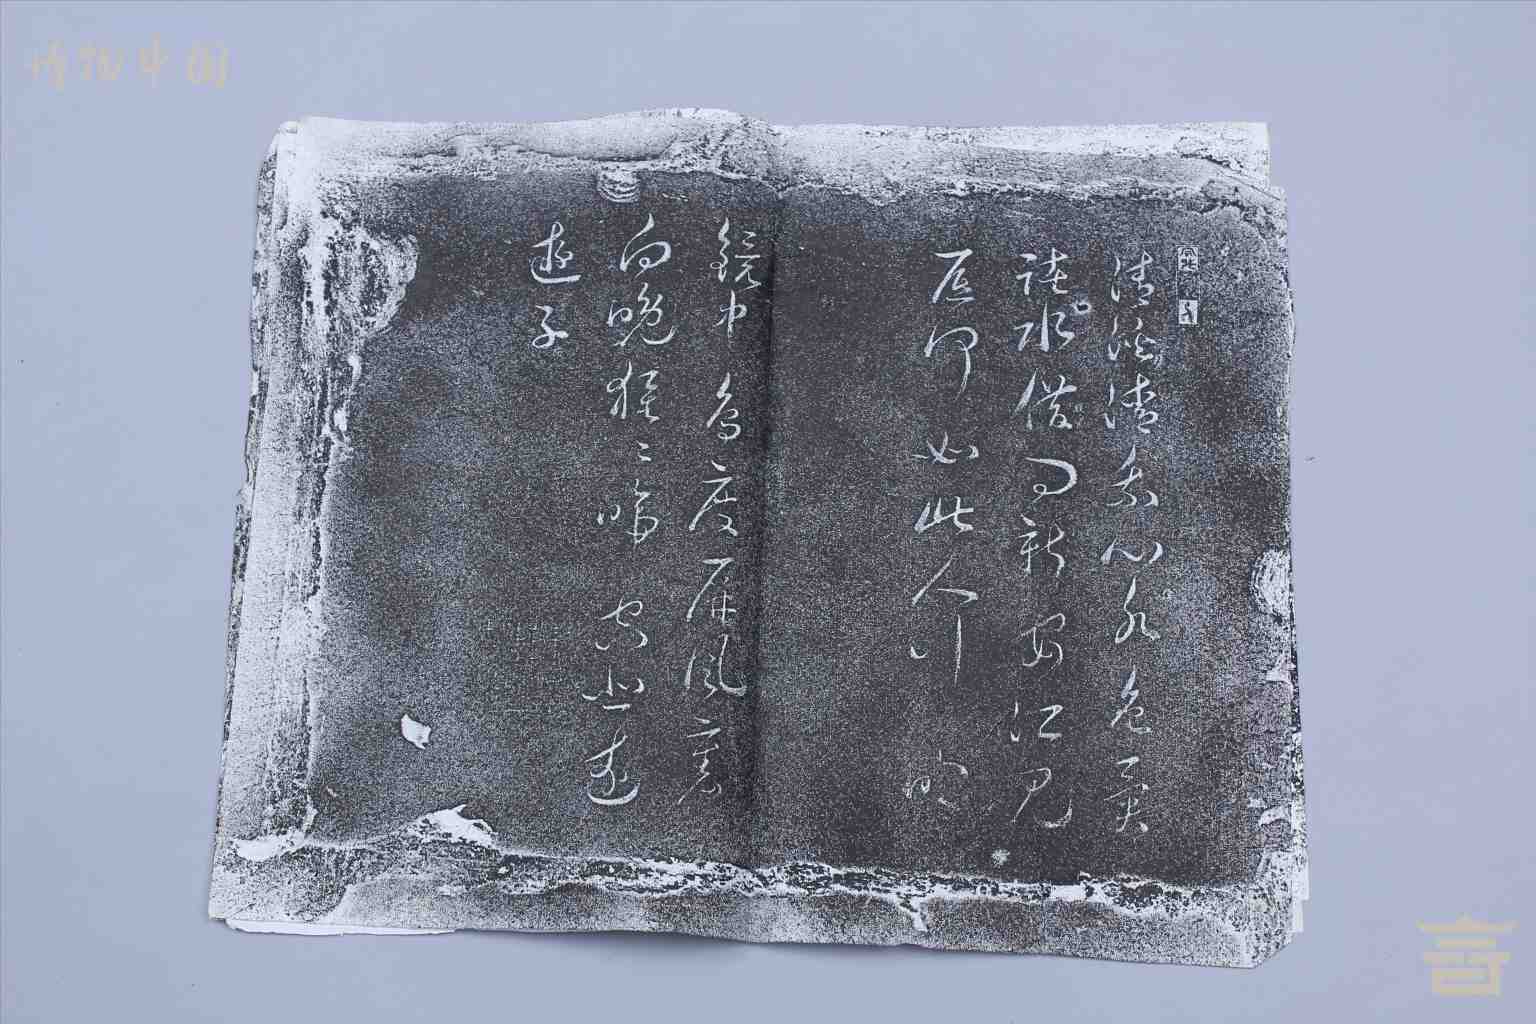 博物中国
清溪清我心水色異
諸水借問新安江見
底何如此人行明
鏡中鳥度屏風裏
向晚猩々啼空悲遠
遊子